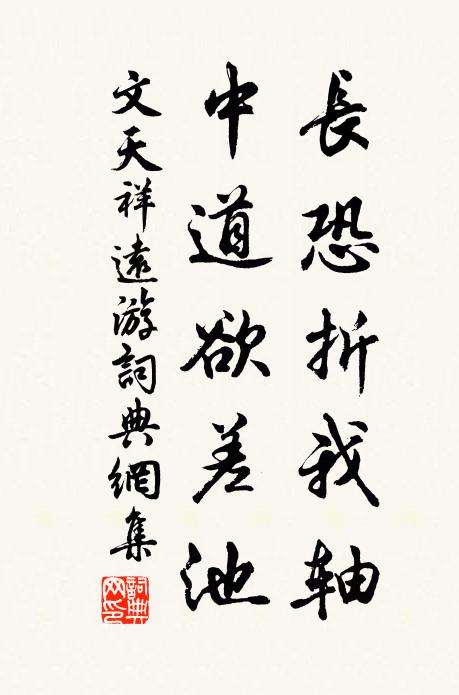 長恐折我軸
中道欲差池
文天祥遠游詞典網集
詞典網印